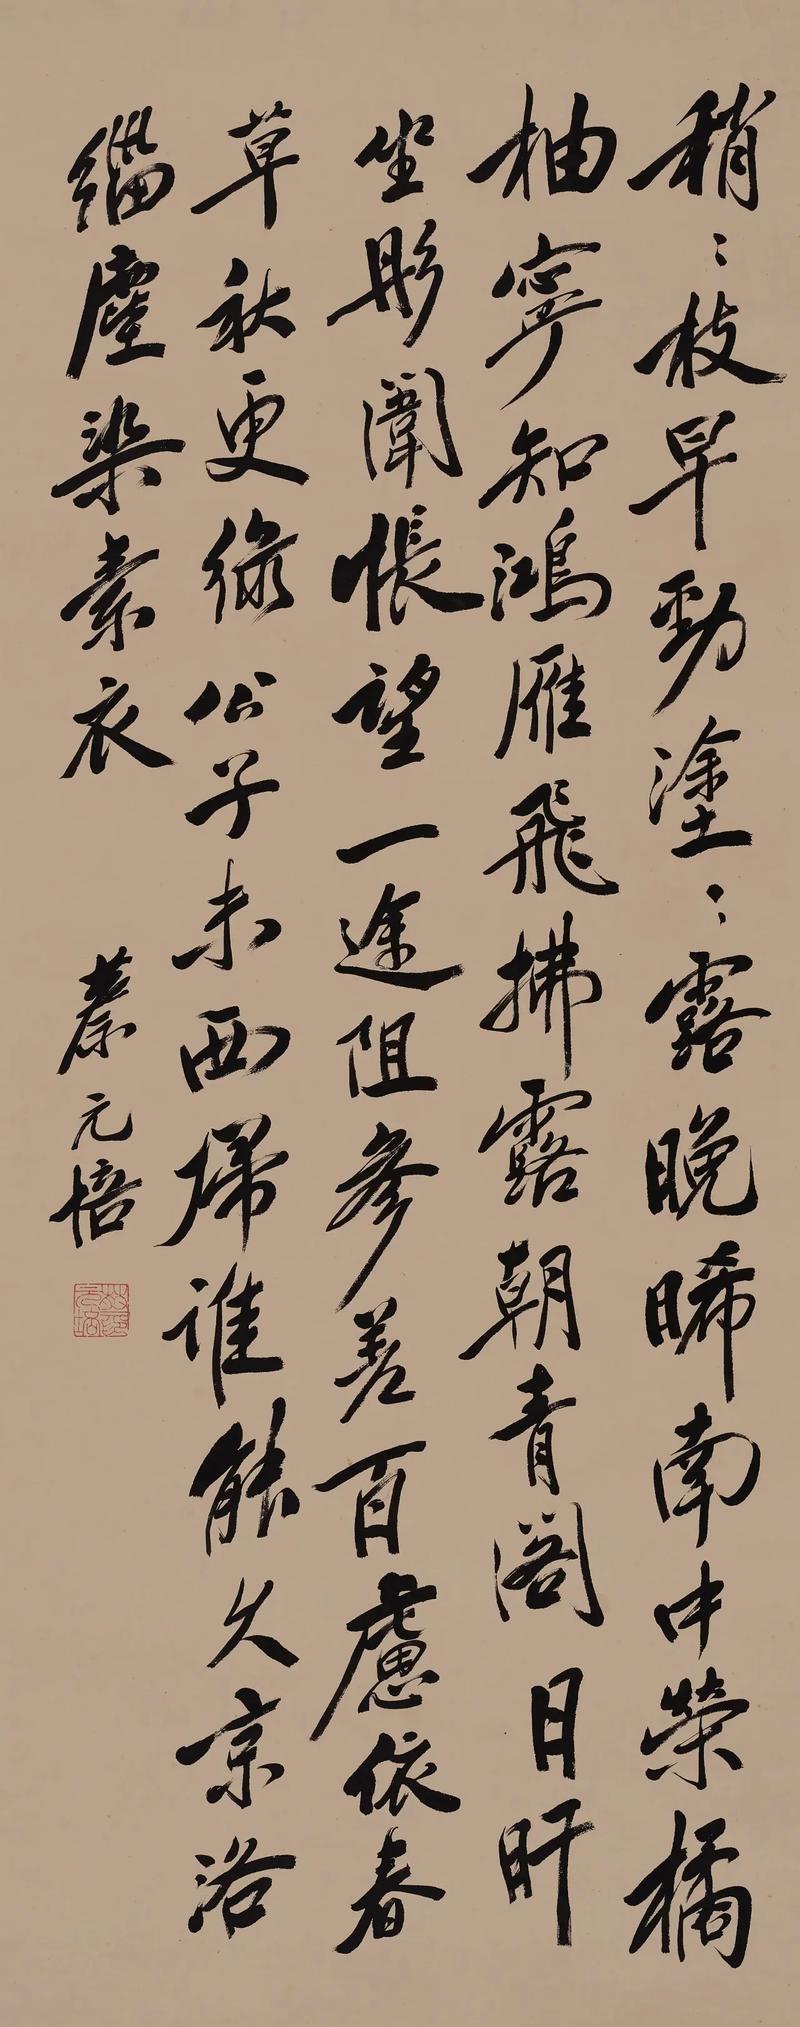 稍〻枝早勁塗〻露晚晞南中榮橘
柚寧知鴻雁飛拂露朝青閣日旰
坐彤闈悵望一途阻參差百慮依春
草秋更綠公子未西歸誰能久京洛
緇塵染素衣
蔡元培